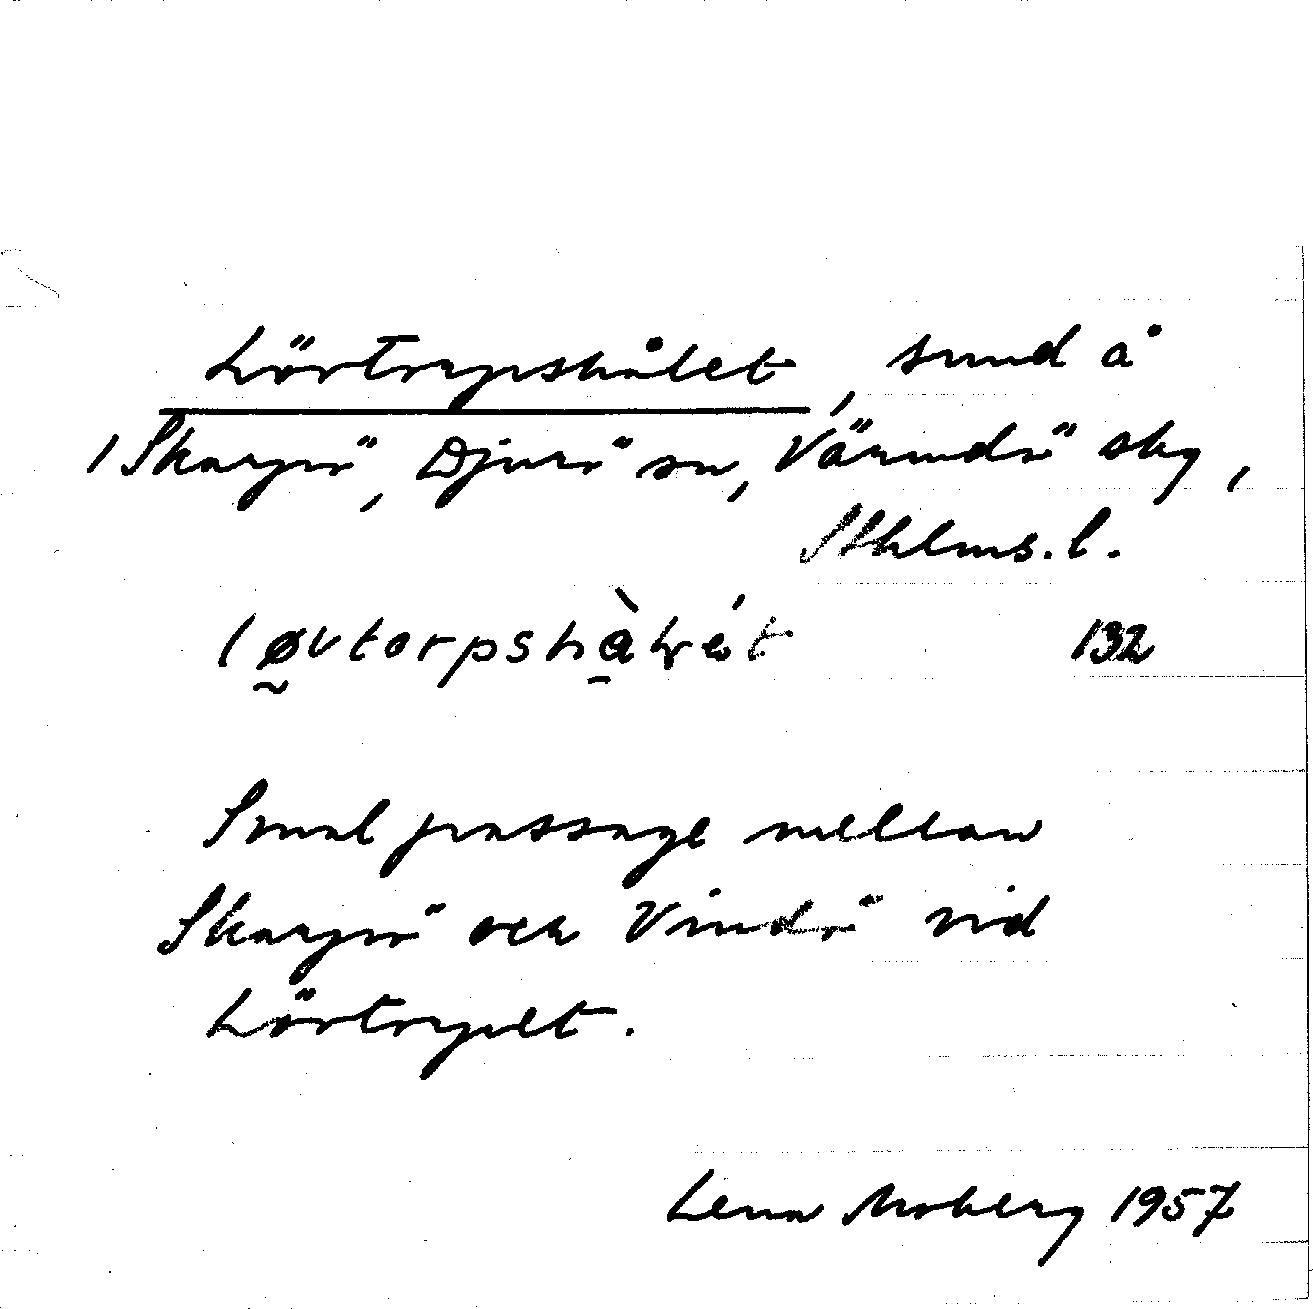 Lövtorpshålet, sund å
/ Skarpö, Djurö sn, Värmdö skg,
Sthlms. l.
løvtorpshàlét 132
Smal passage mellan
Skarpö och Vindö vid
Lövtorpet.
Lena Moberg 1957